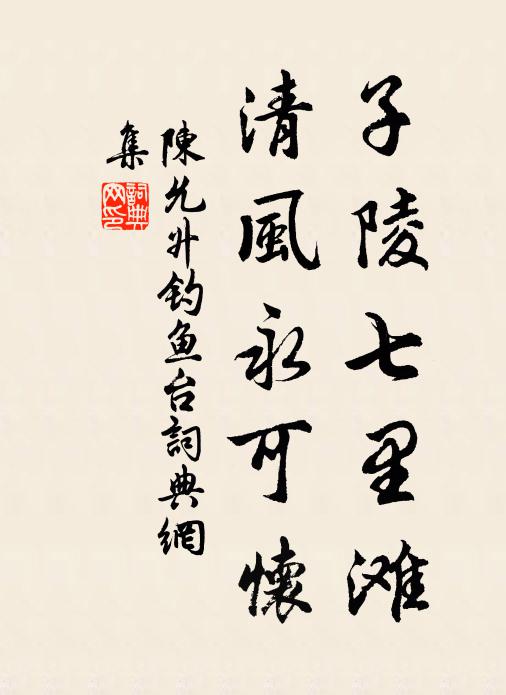 子陵七里滩
清風永可懷
陳允升钓鱼台詞典網
集
詞典网印